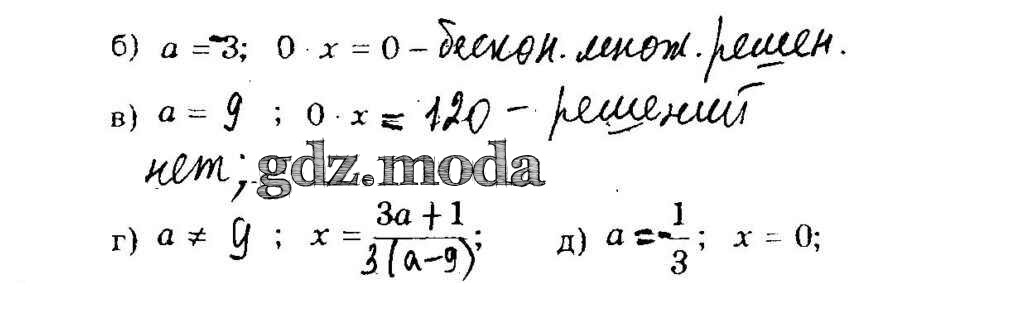 б) a = -3; 0 · x = 0 - бескон. множ. решен.
в) a = 9 ; 0 · x = 120 - решений
нет; gdz.moda
г) a ≠ 9 ; x = \frac{3a + 1}{3(a-9)}; д) a = -\frac{1}{3}; x = 0;